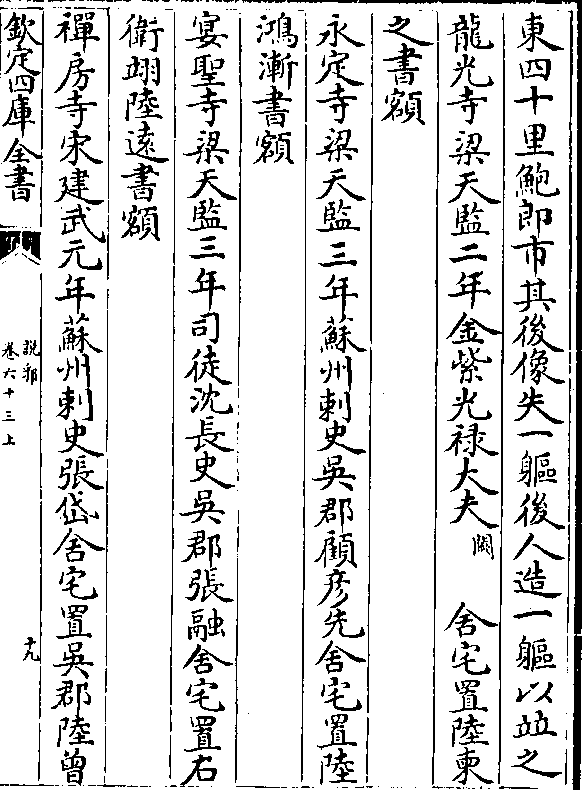 東四十里鮑郎市其後像失一軀後人造一軀以竝之
龍光寺梁天監二年金紫光禄大夫闕舍宅置陸柬
之書額
永定寺梁天監三年蘇州刺史吳郡顧彦先舍宅置陸
鴻漸書額
宴聖寺梁天監三年司徒沈長史吳郡張融舍宅置右
衛翊陸遠書額
禪房寺宋建武元年蘇州刺史張岱舍宅置吳郡陸曾
欽定四庫全書
說郛
卷六十三上
十九